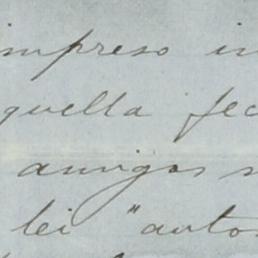 impreso in
quella fec
amigos n
lei "autos